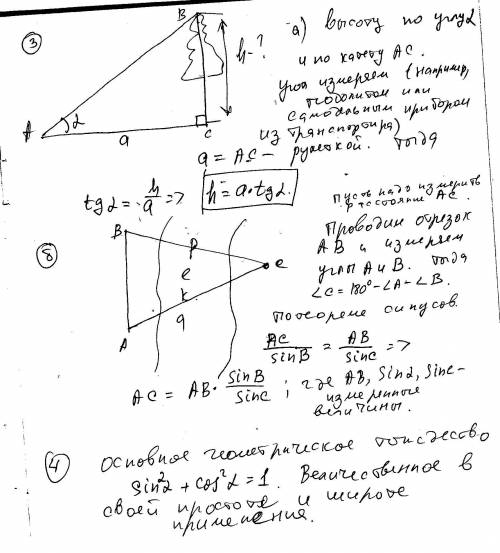 ③
B
h-?
A
α
a
C
а) высоту по углу α
и по катету AC.
угол измеряем (например,
теодолитом или
самодельным прибором
из транспортира)
a = AC - рулеткой. Тогда
tg α = h/a => h = a·tg α.
⑧
B
р
е
к
а
A
C
Пусть надо измерить
расстояние AC.
Проводим отрезок
AB и измеряем
углы A и B. Тогда
∠C = 180° - ∠A - ∠B.
По теореме синусов.
AC/sinB = AB/sinC =>
AC = AB · sinB/sinC ; где AB, sin α, sinC -
измеренные
величины.
④
Основное геометрическое тождество
sin²α + cos²α = 1. Величественное в
своей простоте и широте
применения.